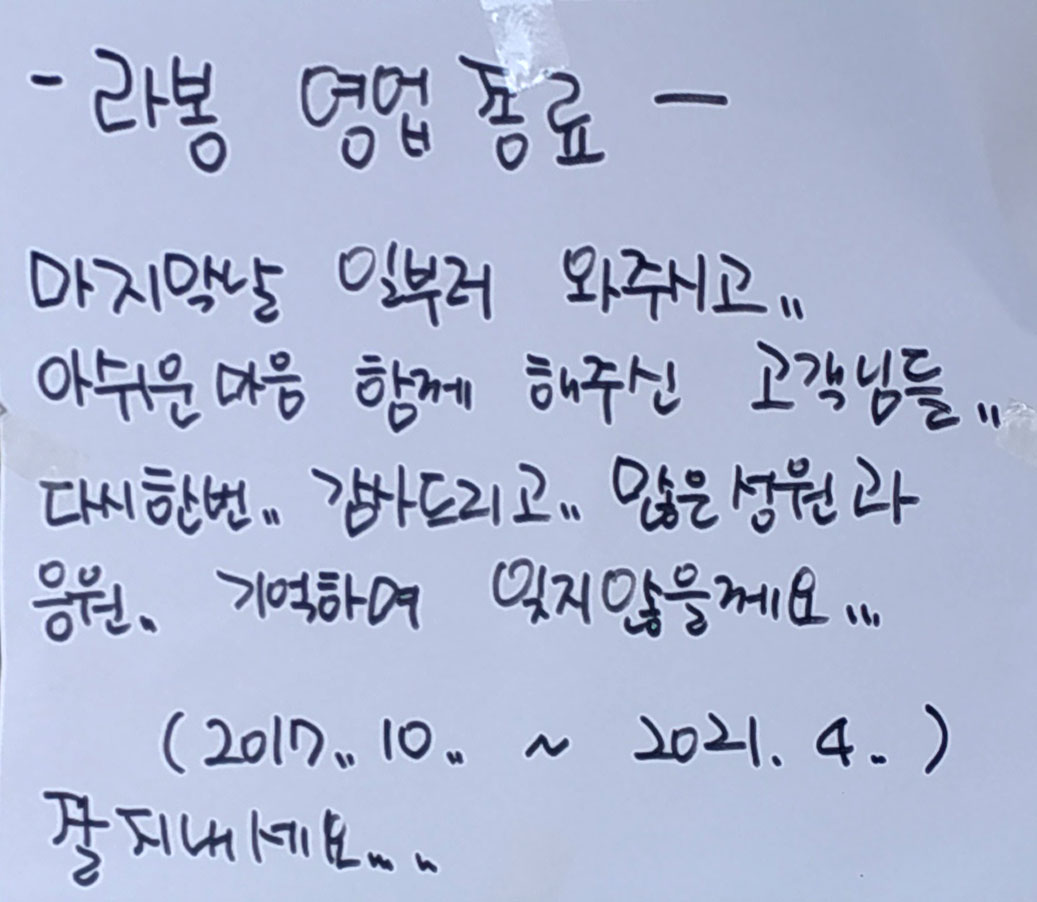 - 라봉 영업 종료 -
마지막날 일부러 와주시고..
아쉬운 마음 함께 해주신 고객님들..
다시한번.. 감사드리고.. 많은 성원과
응원. 기억하여 잊지않을께요...
(2017.. 10.. ~ 2021. 4.. )
잘 지내세요....